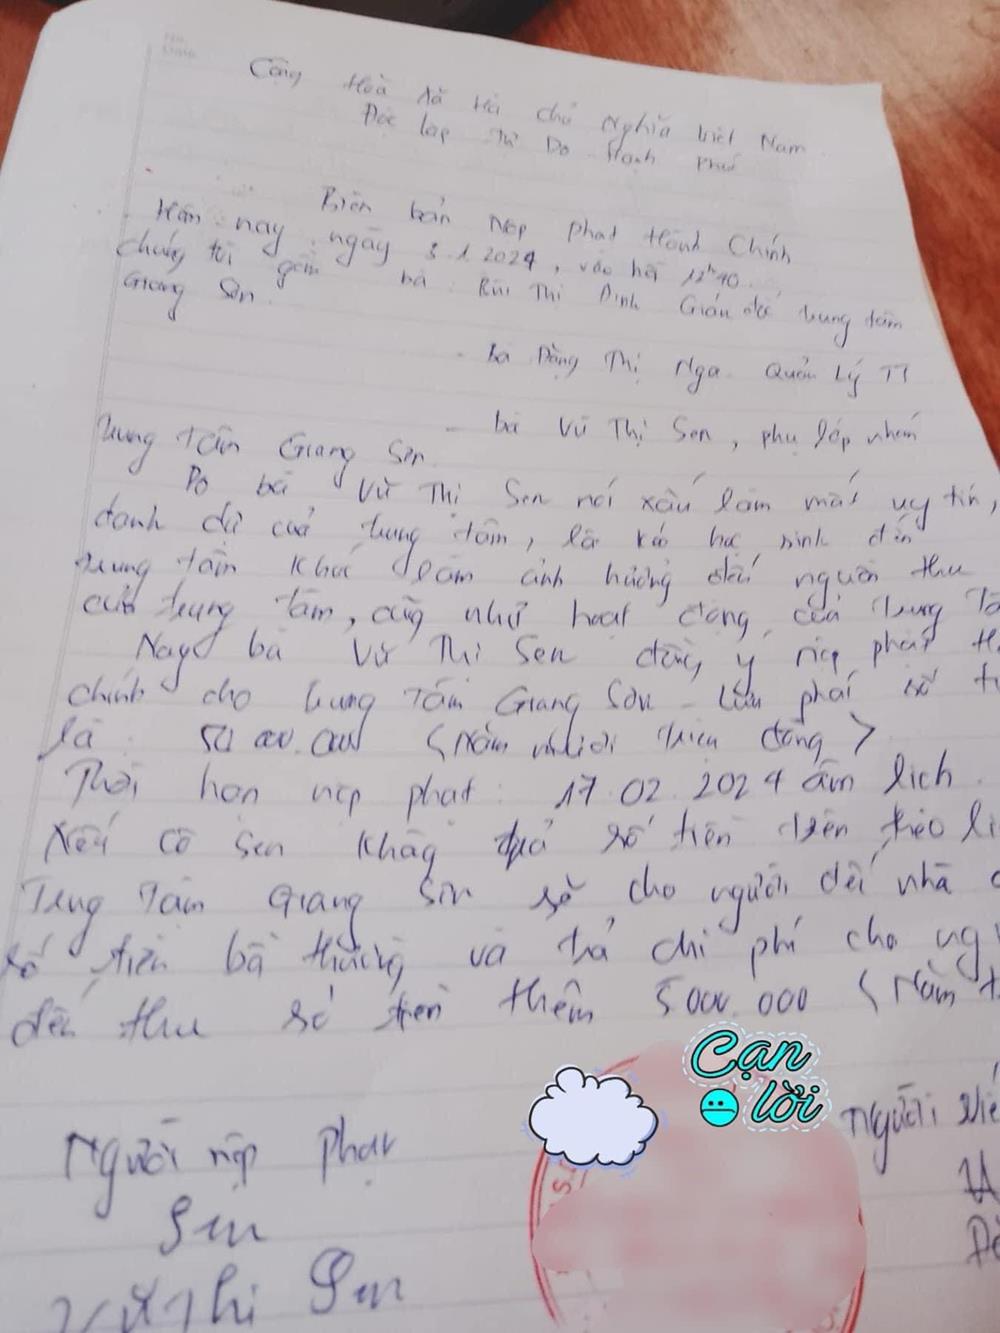 Cộng Hoà Xã Hội Chủ Nghĩa Việt Nam
Độc lập Tự Do Hạnh Phúc
Biên bản Nộp phạt Hành Chính
Hôm nay ngày 3.1.2024, vào hồi 12h40.
chúng tôi gồm bà Bùi Thị Dinh Giám đốc trung tâm
Giang Sơn.
- Bà Đặng Thị Nga. Quản Lý TT
- bà Vũ Thị Sen, phụ lớp nhóm
trung tâm Giang Sơn.
Do bà Vũ Thị Sen nói xấu làm mất uy tín,
danh dự của trung tâm, lôi kéo học sinh đến
trung tâm khác làm ảnh hưởng đến nguồn thu
của trung tâm, cũng như hoạt động của trung
Nay bà Vũ Thị Sen đồng ý nộp phạt
chính cho trung Tâm Giang Sơn số
là: 50.000.000 (Năm mươi triệu đồng)
Thời hạn nộp phạt: 17.02.2024 âm lịch.
Nếu cô Sen không trả số tiền trên theo
Trung Tâm Giang Sơn sẽ cho người đến nhà
số tiền bồi thường và trả chi phí cho
đến thu số tiền thêm 5.000.000 (Năm
Cạn
lời
Người nộp phạt
Người
Sen
Vũ Thị Sen